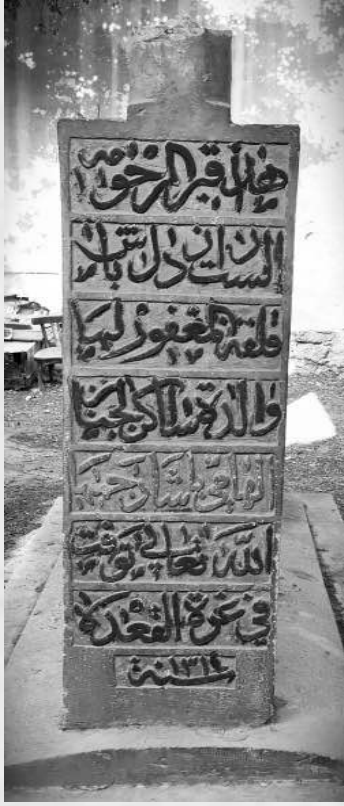 هذا قبر المرحومة
الست دل باش
قلفة المغفور لها
والدة ساكن الجنان
الهامي باشا رحمه
الله تعالى توفيت
في غرة القعدة
سنة